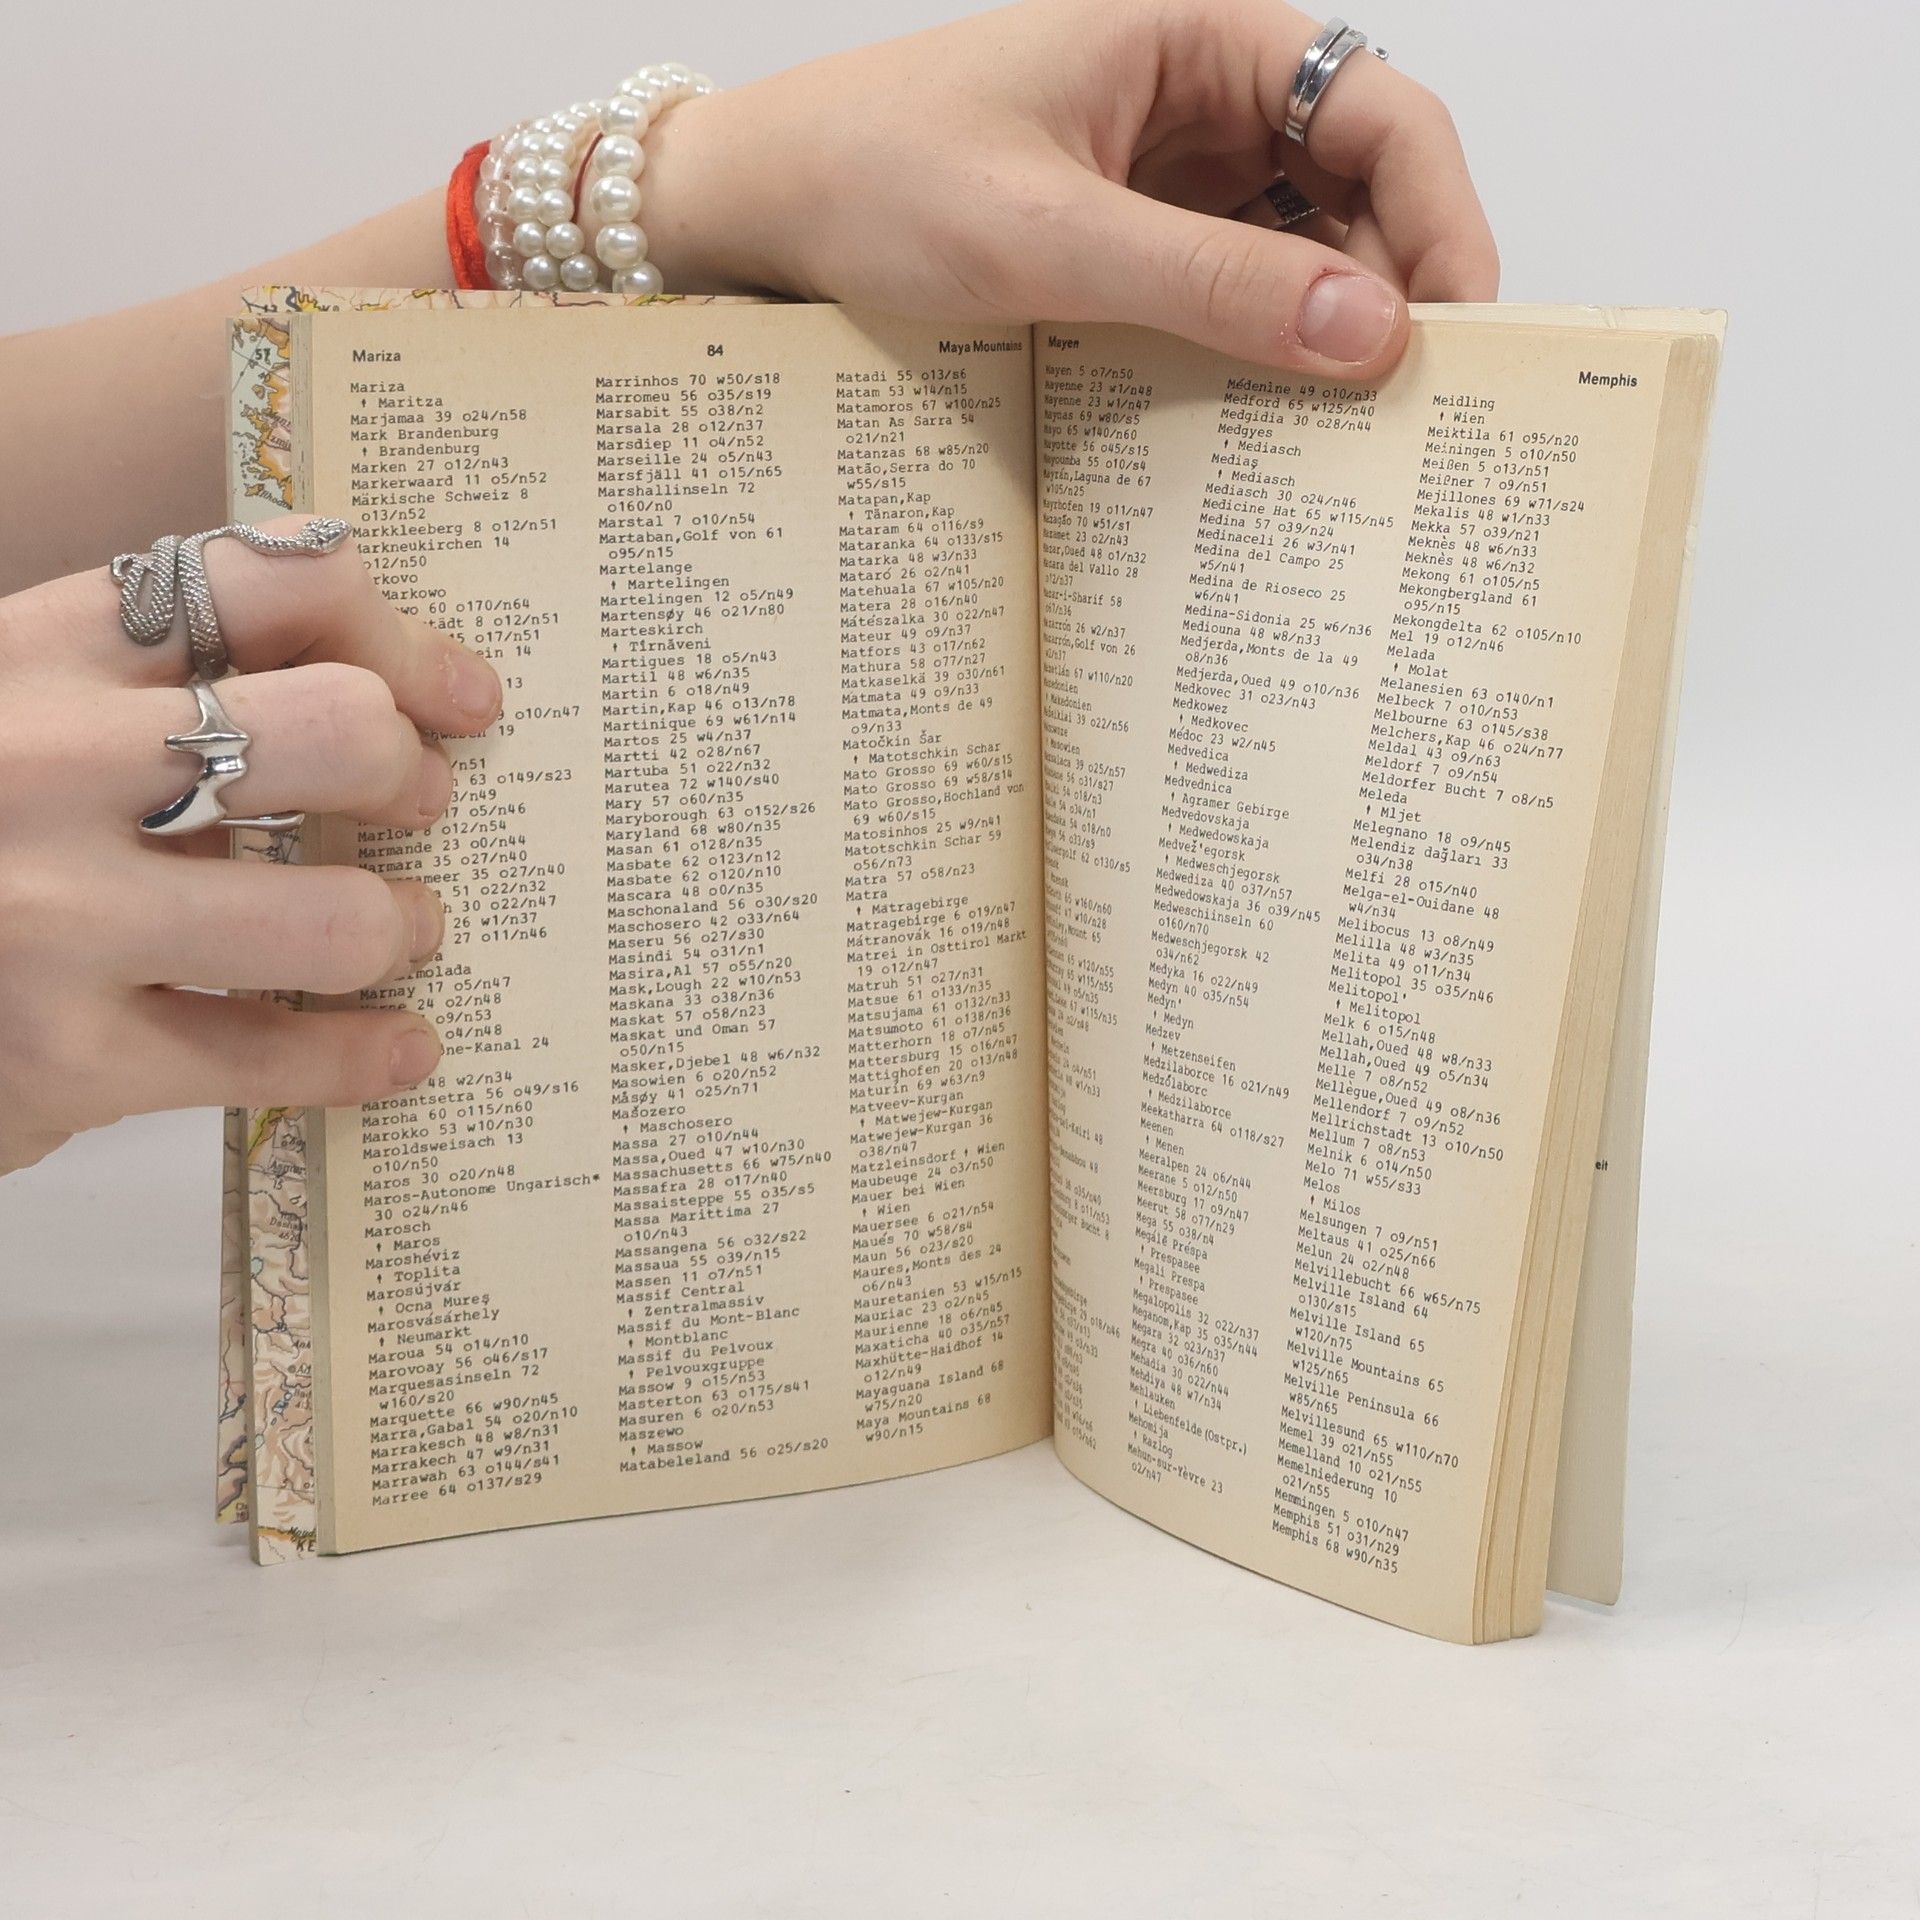 Mariza
84
Maya Mountains
Mariza
↑ Maritza
Marjamaa 39 o24/n58
Mark Brandenburg
↑ Brandenburg
Marken 27 o12/n43
Markerwaard 11 o5/n52
Märkische Schweiz 8
o13/n52
Markkleeberg 8 o12/n51
Markneukirchen 14
o12/n50
Markowo
60 o170/n64
8 o12/n51
o17/n51
14
13
o10/n47
19
/n51
63 o149/s23
/n49
o5/n46
Marlow 8 o12/n54
Marmande 23 o0/n44
Marmara 35 o27/n40
35 o27/n40
51 o22/n32
30 o22/n47
26 w1/n37
27 o11/n46
Marnay 17 o5/n47
24 o2/n48
o9/n53
o4/n48
24
48 w2/n34
Maroantsetra 56 o49/s16
Maroha 60 o115/n60
Marokko 53 w10/n30
Maroldsweisach 13
o10/n50
Maros 30 o20/n48
Maros-Autonome Ungarisch*
30 o24/n46
Marosch
↑ Maros
Maroshéviz
↑ Toplita
Marosújvár
↑ Ocna Mureş
Marosvásárhely
↑ Neumarkt
Maroua 54 o14/n10
Marovoay 56 o46/s17
Marquesasinseln 72
w160/s20
Marquette 66 w90/n45
Marra,Gabal 54 o20/n10
Marrakesch 48 w8/n31
Marrakech 47 w9/n31
Marrawah 63 o144/s41
Marree 64 o137/s29
Marrinhos 70 w50/s18
Marromeu 56 o35/s19
Marsabit 55 o38/n2
Marsala 28 o12/n37
Marsdiep 11 o4/n52
Marseille 24 o5/n43
Marsfjäll 41 o15/n65
Marshallinseln 72
o160/n0
Marstal 7 o10/n54
Martaban,Golf von 61
o95/n15
Martelange
↑ Martelingen
Martelingen 12 o5/n49
Martensøy 46 o21/n80
Marteskirch
↑ Tîrnăveni
Martigues 18 o5/n43
Martil 48 w6/n35
Martin 6 o18/n49
Martin,Kap 46 o13/n78
Martinique 69 w61/n14
Martos 25 w4/n37
Martti 42 o28/n67
Martuba 51 o22/n32
Marutea 72 w140/s40
Mary 57 o60/n35
Maryborough 63 o152/s26
Maryland 68 w80/n35
Masan 61 o128/n35
Masbate 62 o123/n12
Masbate 62 o120/n10
Mascara 48 o0/n35
Maschonaland 56 o30/s20
Maschosero 42 o33/n64
Maseru 56 o27/s30
Masindi 54 o31/n1
Masira,Al 57 o55/n20
Mask,Lough 22 w10/n53
Maskana 33 o38/n36
Maskat 57 o58/n23
Maskat und Oman 57
o50/n15
Masker,Djebel 48 w6/n32
Masowien 6 o20/n52
Måsøy 41 o25/n71
Mašozero
↑ Maschosero
Massa 27 o10/n44
Massa,Oued 47 w10/n30
Massachusetts 66 w75/n40
Massafra 28 o17/n40
Massaisteppe 55 o35/s5
Massa Marittima 27
o10/n43
Massangena 56 o32/s22
Massaua 55 o39/n15
Massen 11 o7/n51
Massif Central
↑ Zentralmassiv
Massif du Mont-Blanc
↑ Montblanc
Massif du Pelvoux
↑ Pelvouxgruppe
Massow 9 o15/n53
Masterton 63 o175/s41
Masuren 6 o20/n53
Maszewo
↑ Massow
Matabeleland 56 o25/s20
Matadi 55 o13/s6
Matam 53 w14/n15
Matamoros 67 w100/n25
Matan As Sarra 54
o21/n21
Matanzas 68 w85/n20
Matão,Serra do 70
w55/s15
Matapan,Kap
↑ Tänaron,Kap
Mataram 64 o116/s9
Mataranka 64 o133/s15
Matarka 48 w3/n33
Mataró 26 o2/n41
Matehuala 67 w105/n20
Matera 28 o16/n40
Mátészalka 30 o22/n47
Mateur 49 o9/n37
Matfors 43 o17/n62
Mathura 58 o77/n27
Matkaselkä 39 o30/n61
Matmata 49 o9/n33
Matmata,Monts de 49
o9/n33
Matočkin Šar
↑ Matotschkin Schar
Mato Grosso 69 w60/s15
Mato Grosso 69 w58/s14
Mato Grosso,Hochland von
69 w60/s15
Matosinhos 25 w9/n41
Matotschkin Schar 59
o56/n73
Matra 57 o58/n23
Matra
↑ Mátragebirge
Mátragebirge 6 o19/n47
Mátranovák 16 o19/n48
Matrei in Osttirol Markt
19 o12/n47
Matruh 51 o27/n31
Matsue 61 o133/n35
Matsujama 61 o132/n33
Matsumoto 61 o138/n36
Matterhorn 18 o7/n45
Mattersburg 15 o16/n47
Mattighofen 20 o13/n48
Maturín 69 w63/n9
Matveev-Kurgan
↑ Matwejew-Kurgan
Matwejew-Kurgan 36
o38/n47
Matzleinsdorf ↑ Wien
Maubeuge 24 o3/n50
Mauer bei Wien
↑ Wien
Mauersee 6 o21/n54
Maués 70 w58/s4
Maun 56 o23/s20
Maures,Monts des 24
o6/n43
Mauretanien 53 w15/n15
Mauriac 23 o2/n45
Maurienne 18 o6/n45
Maxaticha 40 o35/n57
Maxhütte-Haidhof 14
o12/n49
Mayaguana Island 68
w75/n20
Maya Mountains 68
w90/n15
Mayen
Memphis
Mayen 5 o7/n50
Mayenne 23 w1/n48
Mayenne 23 w1/n47
Maynas 69 w80/s5
Mayo 65 w140/n60
Mayotte 56 o45/s15
Mayoumba 55 o10/s4
Mayrán,Laguna de 67
w105/n25
Mayrhofen 19 o11/n47
Mazagão 70 w51/s1
Mazamet 23 o2/n43
Mazar,Oued 48 o1/n32
Mazara del Vallo 28
o12/n37
Mazar-i-Sharif 58
o67/n36
Mazarrón 26 w2/n37
Mazarrón,Golf von 26
w1/n37
Mazatlán 67 w110/n20
Mazedonien
↑ Makedonien
Médenine 49 o10/n33
Medford 65 w125/n40
Medgidia 30 o28/n44
Medgyes
↑ Mediasch
Mediaş
↑ Mediasch
Mediasch 30 o24/n46
Medicine Hat 65 w115/n45
Medina 57 o39/n24
Medinaceli 26 w3/n41
Medina del Campo 25
w5/n41
Medina de Rioseco 25
w6/n41
Medina-Sidonia 25 w6/n36
Mediouna 48 w8/n33
Medjerda,Monts de la 49
o8/n36
Medjerda,Oued 49 o10/n36
Medkovec 31 o23/n43
Medkowez
↑ Medkovec
Médoc 23 w2/n45
Medvedica
↑ Medwediza
Medvednica
↑ Agramer Gebirge
Medvedovskaja
↑ Medwedowskaja
Medvež'egorsk
↑ Medweschjegorsk
Medwediza 40 o37/n57
Medwedowskaja 36 o39/n45
Medweschiinseln 60
o160/n70
Medweschjegorsk 42
o34/n62
Medyka 16 o22/n49
Medyn 40 o35/n54
Medyn'
↑ Medyn
Medzev
↑ Metzenseifen
Medzilaborce 16 o21/n49
Medzőlaborc
↑ Medzilaborce
Meekatharra 64 o118/s27
Meenen
↑ Menen
Meeralpen 24 o6/n44
Meerane 5 o12/n50
Meersburg 17 o9/n47
Meerut 58 o77/n29
Mega 55 o38/n4
Megálē Préspa
↑ Prespasee
Megali Prespa
↑ Prespasee
Megalopolis 32 o22/n37
Meganom,Kap 35 o35/n44
Megara 32 o23/n37
Megra 40 o36/n60
Mehadia 30 o22/n44
Mehdiya 48 w7/n34
Mehlauken
↑ Liebenfelde(Ostpr.)
Mehomija
↑ Razlog
Mehun-sur-Yèvre 23
o2/n47
Meidling
↑ Wien
Meiktila 61 o95/n20
Meiningen 5 o10/n50
Meißen 5 o13/n51
Meißner 7 o9/n51
Mejillones 69 w71/s24
Mekalis 48 w1/n33
Mekka 57 o39/n21
Meknès 48 w6/n33
Meknès 48 w6/n32
Mekong 61 o105/n5
Mekongbergland 61
o95/n15
Mekongdelta 62 o105/n10
Mel 19 o12/n46
Melada
↑ Molat
Melanesien 63 o140/n1
Melbeck 7 o10/n53
Melbourne 63 o145/s38
Melchers,Kap 46 o24/n77
Meldal 43 o9/n63
Meldorf 7 o9/n54
Meldorfer Bucht 7 o8/n5
Meleda
↑ Mljet
Melegnano 18 o9/n45
Melendiz dağları 33
o34/n38
Melfi 28 o15/n40
Melga-el-Ouidane 48
w4/n34
Melibocus 13 o8/n49
Melilla 48 w3/n35
Melita 49 o11/n34
Melitopol 35 o35/n46
Melitopol'
↑ Melitopol
Melk 6 o15/n48
Mellah,Oued 48 w8/n33
Mellah,Oued 49 o5/n34
Melle 7 o8/n52
Mellègue,Oued 49 o8/n36
Mellendorf 7 o9/n52
Mellrichstadt 13 o10/n50
Mellum 7 o8/n53
Melnik 6 o14/n50
Melo 71 w55/s33
Melos
↑ Milos
Melsungen 7 o9/n51
Meltaus 41 o25/n66
Melun 24 o2/n48
Melvillebucht 66 w65/n75
Melville Island 64
o130/s15
Melville Island 65
w120/n75
Melville Mountains 65
w125/n65
Melville Peninsula 66
w85/n65
Melvillesund 65 w110/n70
Memel 39 o21/n55
Memelland 10 o21/n55
Memelniederung 10
o21/n55
Memmingen 5 o10/n47
Memphis 51 o31/n29
Memphis 68 w90/n35